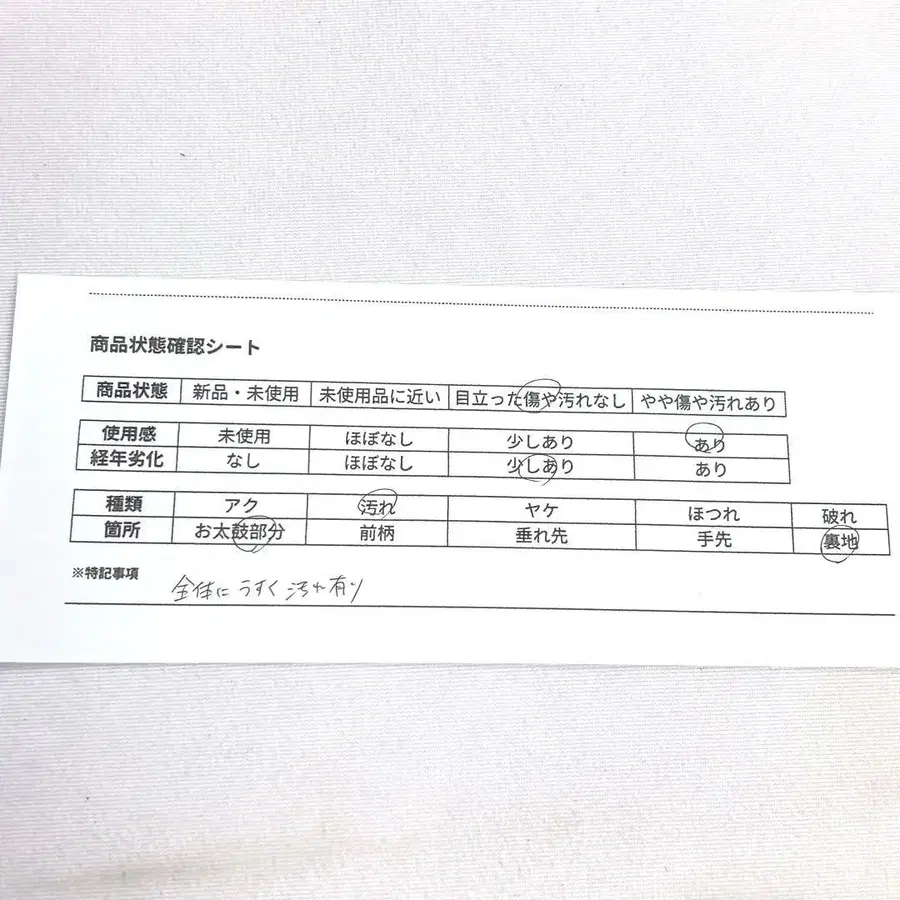 商品状態確認シート
商品状態 新品・未使用 未使用品に近い 目立った傷や汚れなし やや傷や汚れあり
使用感 未使用 ほぼなし 少しあり あり
経年劣化 なし ほぼなし 少しあり あり
種類 アク 汚れ ヤケ ほつれ 破れ
箇所 お太鼓部分 前柄 垂れ先 手先 裏地
※特記事項 全体にうすく汚れ有り